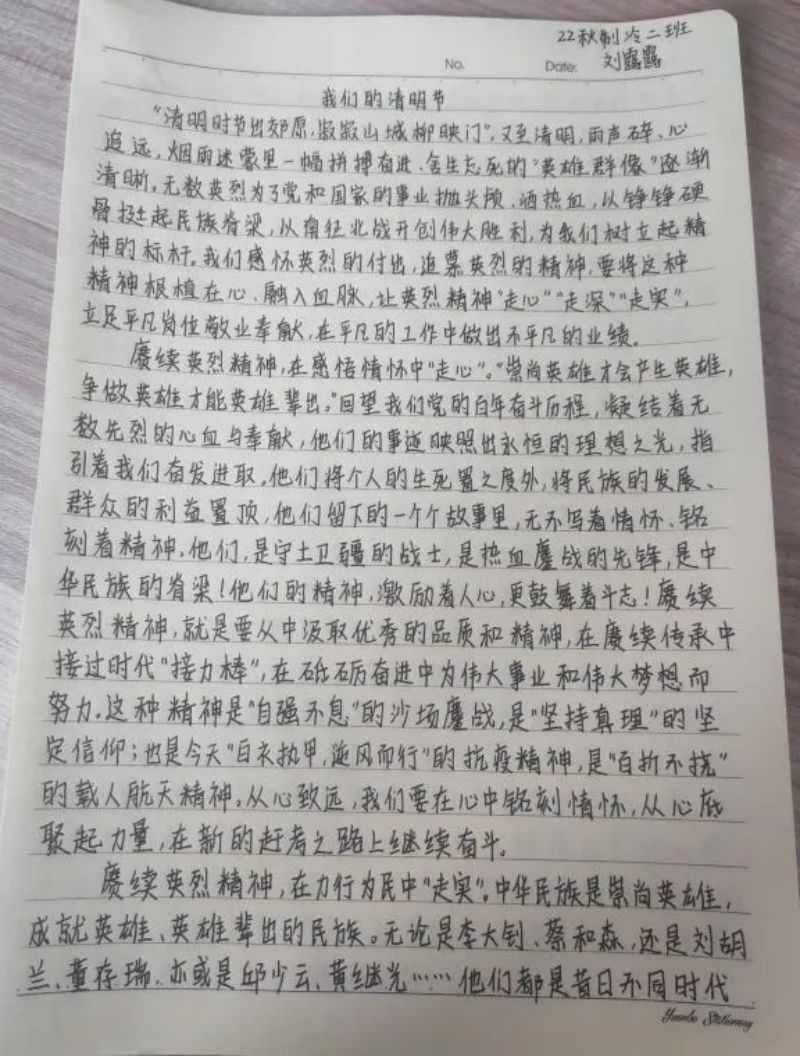 22秋制冷二班
No.
Date: 刘露露
我们的清明节
"清明时节出郊原,寂寂山城柳映门",又至清明,雨声碎、心
追远,烟雨迷蒙里一幅拼搏奋进、舍生忘死的"英雄群像"逐渐
清晰。无数英烈为了党和国家的事业抛头颅、洒热血,从铮铮硬
骨挺起民族脊梁,从南征北战开创伟大胜利,为我们树立起精
神的标杆。我们感怀英烈的付出,追慕英烈的精神,要将这种
精神根植在心、融入血脉,让英烈精神"走心""走深""走实",
立足平凡岗位敬业奉献,在平凡的工作中做出不平凡的业绩。
赓续英烈精神,在感悟情怀中"走心"。"崇尚英雄才会产生英雄,
争做英雄才能英雄辈出。"回望我们党的百年奋斗历程,凝结着无
数先烈的心血与奉献,他们的事迹映照出永恒的理想之光,指
引着我们奋发进取。他们将个人的生死置之度外,将民族的发展、
群众的利益置顶,他们留下的一个个故事里,无不写着情怀、铭
刻着精神。他们,是守土卫疆的战士,是热血鏖战的先锋,是中
华民族的脊梁!他们的精神,激励着人心,更鼓舞着斗志!赓续
英烈精神,就是要从中汲取优秀的品质和精神,在赓续传承中
接过时代"接力棒",在砥砺奋进中为伟大事业和伟大梦想而
努力。这种精神是"自强不息"的沙场鏖战,是"坚持真理"的坚
定信仰;也是今天"白衣执甲,逆风而行"的抗疫精神,是"百折不挠"
的载人航天精神。从心致远,我们要在心中铭刻情怀,从心底
聚起力量,在新的赶考之路上继续奋斗。
赓续英烈精神,在力行为民中"走实"。中华民族是崇尚英雄,
成就英雄、英雄辈出的民族。无论是李大钊、蔡和森,还是刘胡
兰、董存瑞,亦或是邱少云、黄继光……他们都是昔日不同时代